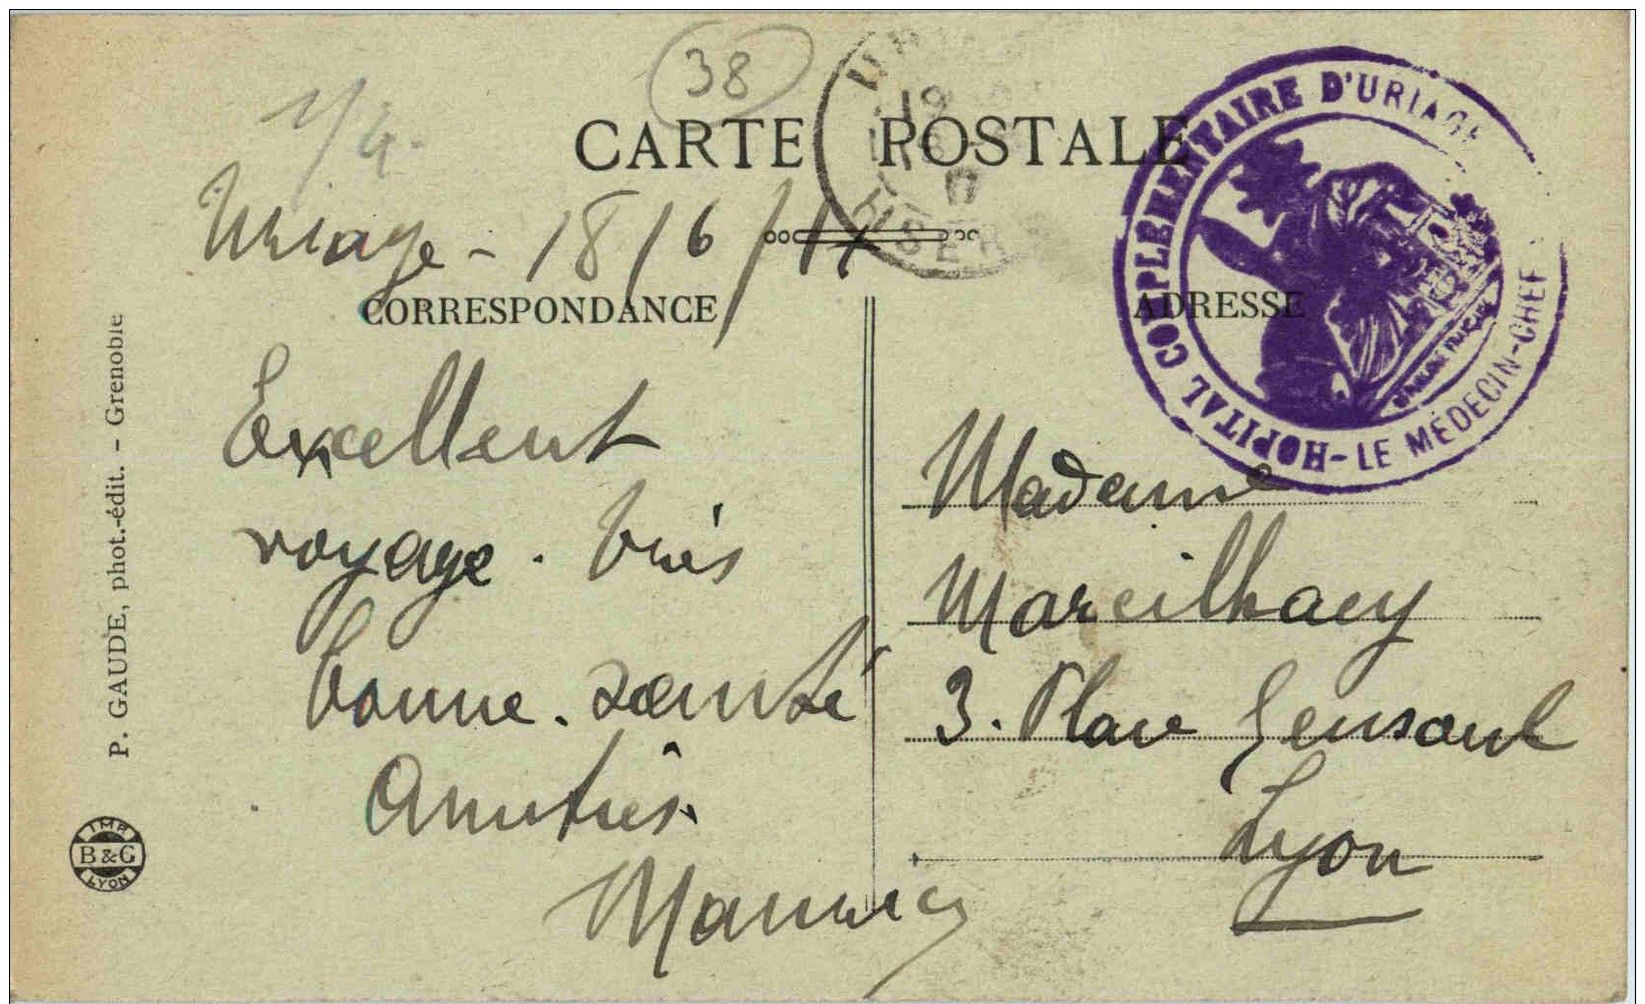 38
1/4.
CARTE POSTALE
19
17
ISÈRE
HOPITAL COMPLEMENTAIRE D'URIAGE - LE MÉDECIN-CHEF
Uriage - 18/6/17
CORRESPONDANCE
Excellent
voyage. très
bonne. santé
Amitiés.
ADRESSE
Madame
Mareilhacy
3. Place Gensoul
Lyon
P. GAUDE, phot.-édit. - Grenoble
IMP
B & G
LYON